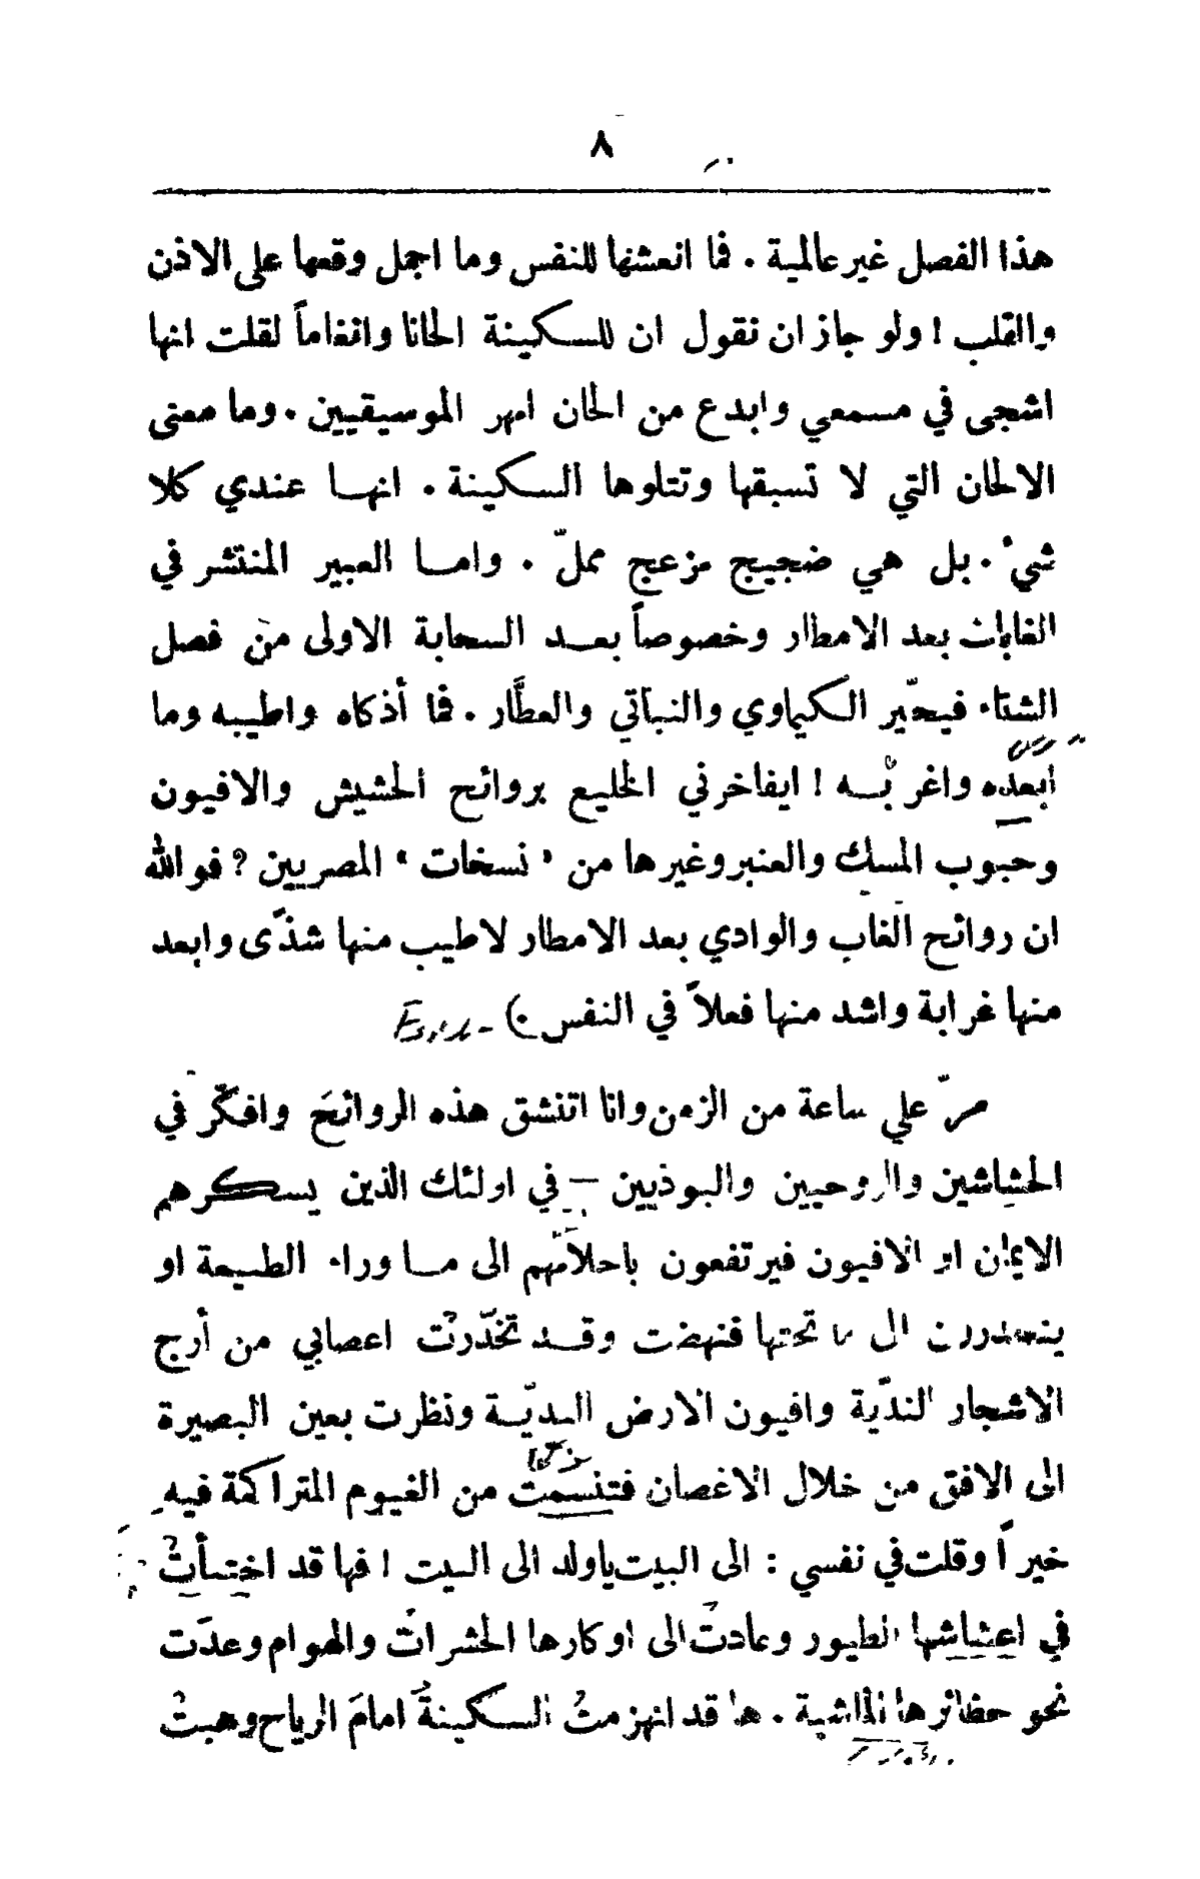 ٨
هذا الفصل غير عالمية . فما انعشها للنفس وما اجمل وقعها على الاذن
والقلب ! ولو جاز ان نقول ان للسكينة الحانا وانغاماً لقلت انها
اشجى في مسمعي وابدع من الحان امهر الموسيقيين . وما معنى
الالحان التي لا تسبقها وتتلوها السكينة . انها عندي كلا
شيء . بل هي ضجيج مزعج مملّ . واما العبير المنتشر في
الغابات بعد الامطار وخصوصاً بعد السحابة الاولى من فصل
الشتاء فيحيّر الكيماوي والنباتي والعطَّار . فما أذكاه واطيبه وما
أبعده واغربه ! ايفاخرني الخليع بروائح الحشيش والافيون
وحبوب المسك والعنبر وغيرها من « نسخات » المصريين ؟ فوالله
ان روائح الغاب والوادي بعد الامطار لاطيب منها شذًى وابعد
منها غرابة واشد منها فعلاً في النفس .)
مرّ علي ساعة من الزمن وانا اتنشق هذه الروائح وافكّر في
الحشاشين والروحيين والبوذيين – في اولئك الذين يسكرهم
الايمان او الافيون فيرتفعون باحلامهم الى ما وراء الطبيعة او
ينحدرون الى ما تحتها فنهضت وقد تخدّرت اعصابي من أرج
الاشجار النديّة وافيون الارض البديّة ونظرت بعين البصيرة
الى الافق من خلال الاغصان فتنسمت من الغيوم المتراكمة فيهِ
خيراً وقلت في نفسي : الى البيت يا ولد الى البيت ! فها قد اختبأتْ
في اعشاشها الطيور وعادتْ الى اوكارها الحشراتُ والهوام وعدَت
نحو حظائرها الماشية . ها قد انهزمتْ السكينةُ امامَ الرياح وهبتْ